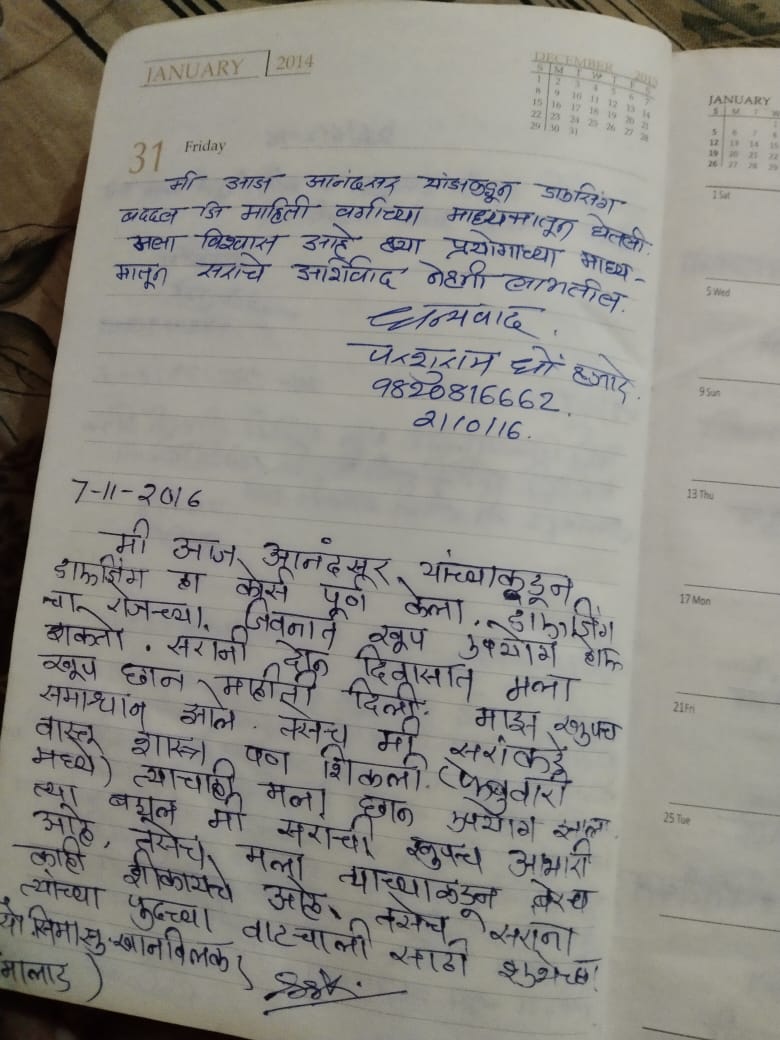 JANUARY 2014
DECEMBER 2013
S M T W T F S
1 2 3 4 5 6 7
8 9 10 11 12 13 14
15 16 17 18 19 20 21
22 23 24 25 26 27 28
29 30 31
31 Friday
मी आज आनंदसर यांजकडून डाऊसिंग
बददल जि माहिती वर्गाच्या माध्यमातून घेतली.
मला विश्वास आहे ह्या प्रयोगाच्या माध्य-
मातून सराचे आर्शिवाद नेहमी लाभतील.
धन्यवाद.
परशुराम धों
9820816662.
2/10/16.
7-11-2016
मी आज आनंदसर यांच्याकडून
डाऊजिंग हा कोर्स पूर्ण केला. डाऊजिंग
चा रोजच्या जिवनात खूप उपयोग होऊ
शकतो. सरांनी दोन दिवासात मला
खूप छान माहीती दिली. माझ खूपच
समाधान झाल. तसेच मी सरांकडे
वास्तू शास्त्र पण शिकली. (फेब्रुवारी
मध्ये) त्याचाही मला छान उपयोग झाला
त्या बद्दल मी सराची खुपच आभारी
आहे. तसेच मला त्याच्याकडून बरेच
काही शीकायचे आहे. तसेच सरांना
त्यांच्या पुढच्या वाटचाली साठी शुभेच्छा
सौ सिमा सु. खानविलकर
मालाड)
JANUARY
S M T W
5 6 7
12 13 14 15
19 20 21 22
26 27 28 29
1 Sat
5 Wed
9 Sun
13 Thu
17 Mon
21 Fri
25 Tue